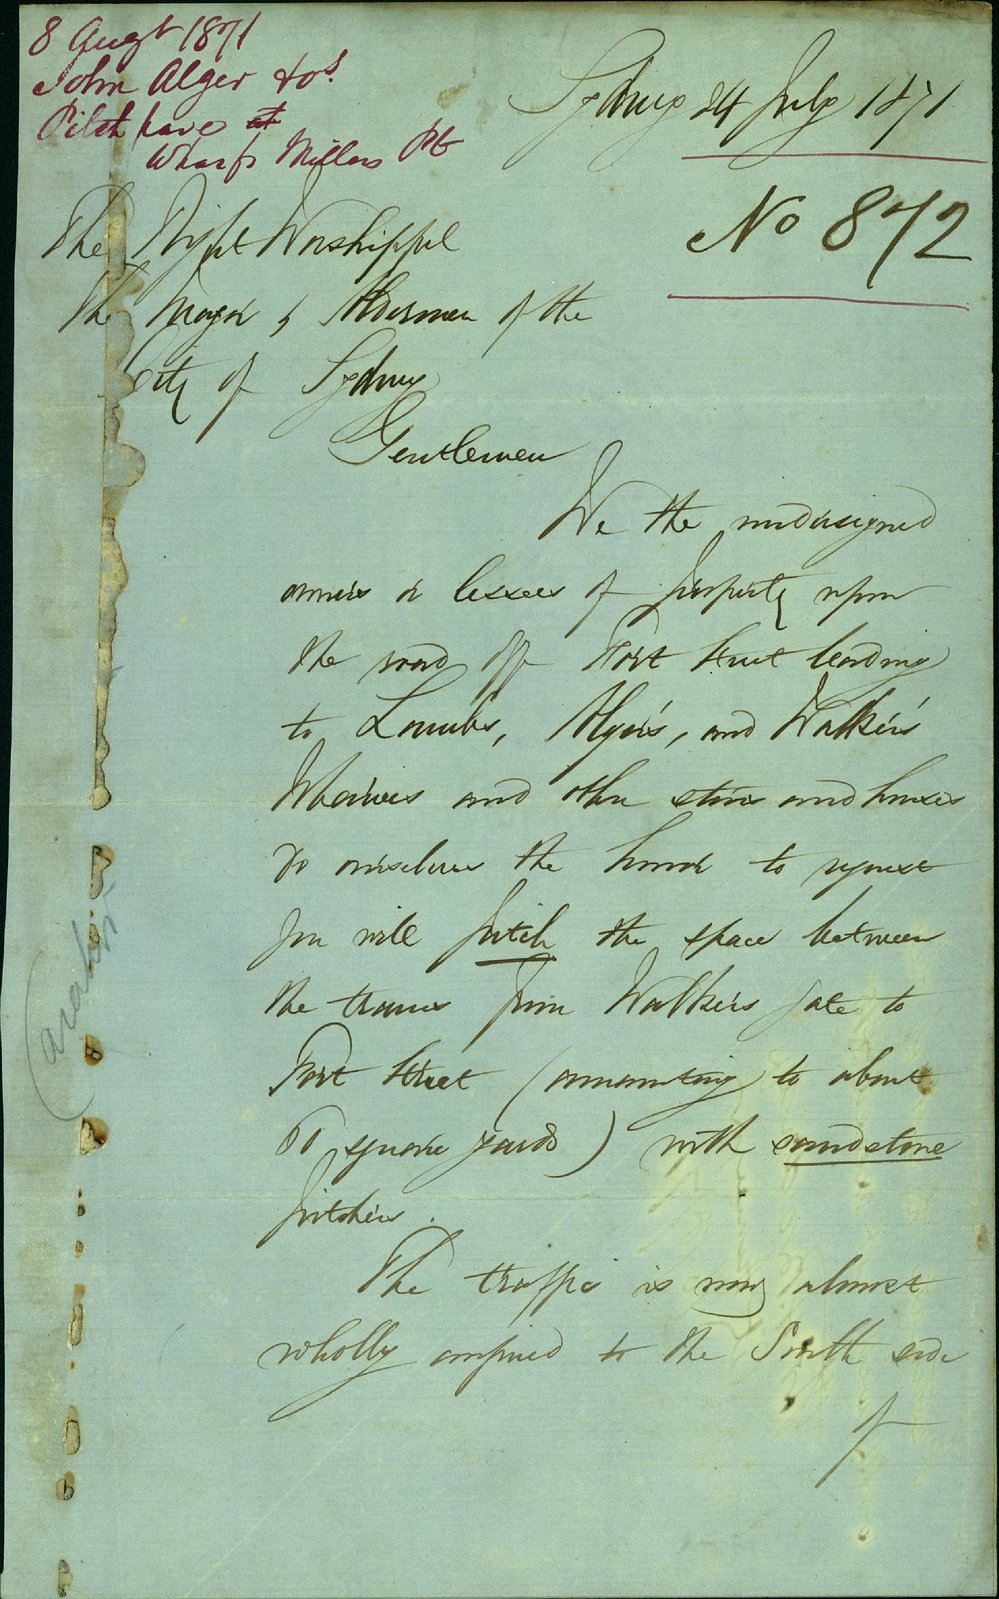 8 Augt 1871
John Alger & ors
Pitch pave at
Wharfs Millers Pt
Sydney 24 July 1871
No 872
The Right Worshipful
The Mayor & Aldermen of the
City of Sydney
Gentlemen
We the undersigned
owners or lessees of property upon
the road off Fort Street leading
to Lambs, Alger's, and Walker's
Wharves and other stores and houses
do ourselves the honor to request
you will pitch the space between
the trams from Walkers gate to
Fort Street (amounting to about
square yards) with sandstone
pitchers.
The traffic is now almost
wholly confined to the South side
of